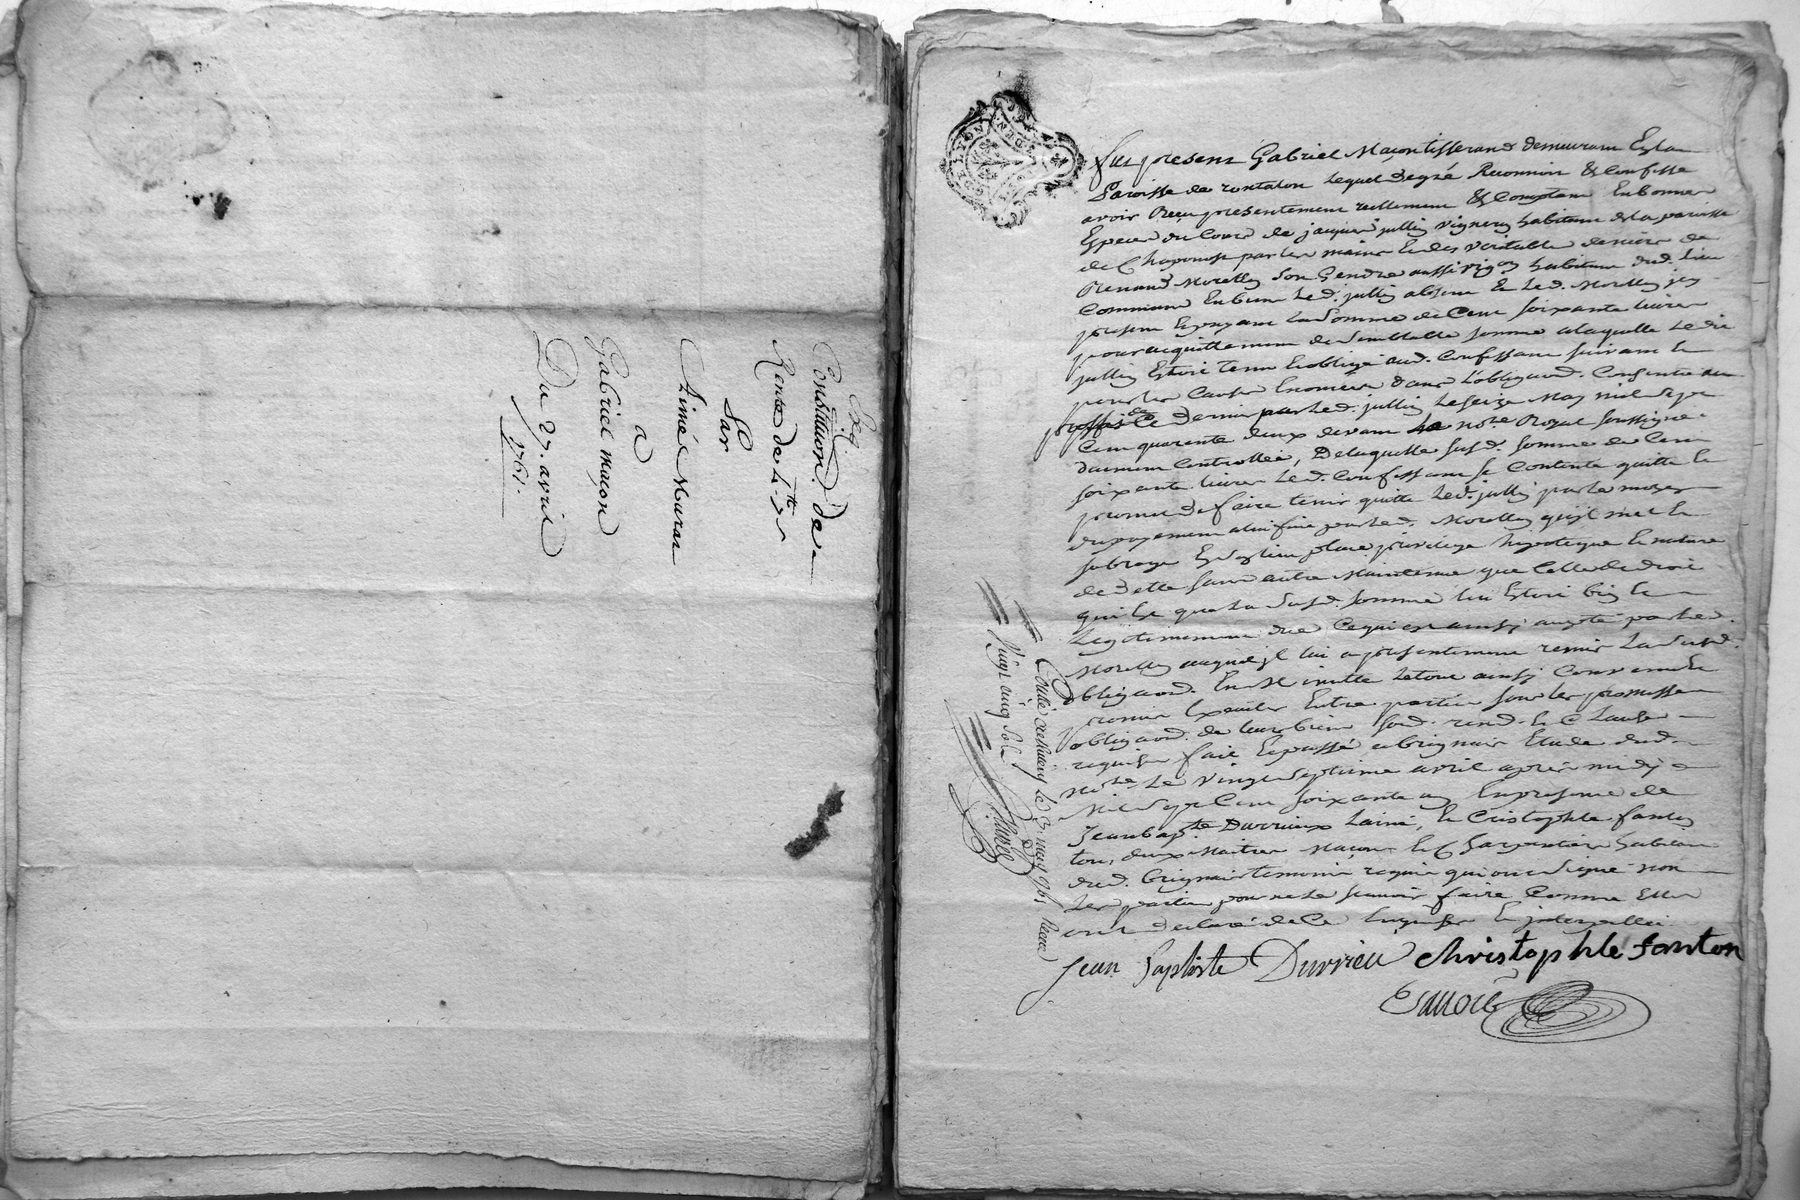 Exp.
Constituon. de
Rente de L.
Par
Aimé Murat
a
Gabriel maçon
Du 27. avril
1761.
GEN DE LYON
fut present Gabriel Maçon tisserand demeurant En la
Paroisse de rontalon Lequel de gré Reconnoit & Confesse
avoir Receu presentement reellement & Comptant En bonnes
Especes du Cours de jacques jullin vigneron habitant de la paroisse
de Chaponost par les mains & des veritables deniers de
Renaud Morellon Son Gendre aussi vigon. habitant dud. Lieu
Commune En biens Led. jullin absent & Led. Morellon icy
present Le payant La Somme de Cent soixante livres
pour acquittement de Semblable somme a laquelle Le dit
jullin Estoit tenu & obligé aud. Confessant suivant &
pour les Causes Enoncées dans L'obligaon. Consentie au
proffit de Ce dernier par Led. jullin Le seize May mil Sept
Cent quarente deux devant Le nore. Royal soussigné
duement Controllée, De laquelle susd. somme de Cent
soixante livres Led. Confessant se Contente quitte &
promet de faire tenir quitte Led. jullin par le moyen
du payement a lui fait par Led. Morellon qu'il met &
subroge En son lieu place privilege hypoteque & nature
de dette sans autre Maintenue que Celle de droit
qui Est que La Susd. somme lui Estoit bien &
Legitimement due Ce qui est ainsy accepté par Led.
Morellon auquel il lui a presentement remis La Susd.
obligaon. Le tout ainsy Convenu &
promis Executer Entre parties sous les promesses
obligaon. de leurs biens soud. renond. & Clauses
requises fait & passé a brignais Etude dud.
nore. Le vingt Septieme avril après midy
Mil Sept Cent soixante un En presence de
Jean bapte. Durrieux Lainé, & Cristophle fanton
deux Maitres Maçon & Charpentier habitans
dud. brignais temoins requis qui ont signé non
Les parties pour ne Le scavoir faire Comme Elles
ont declaré de Ce Enquises & interpellés
Jean Baptiste Durrieu Christophle fanton
Controllé le 3. may 1761 Reçu
Vingt cinq sols